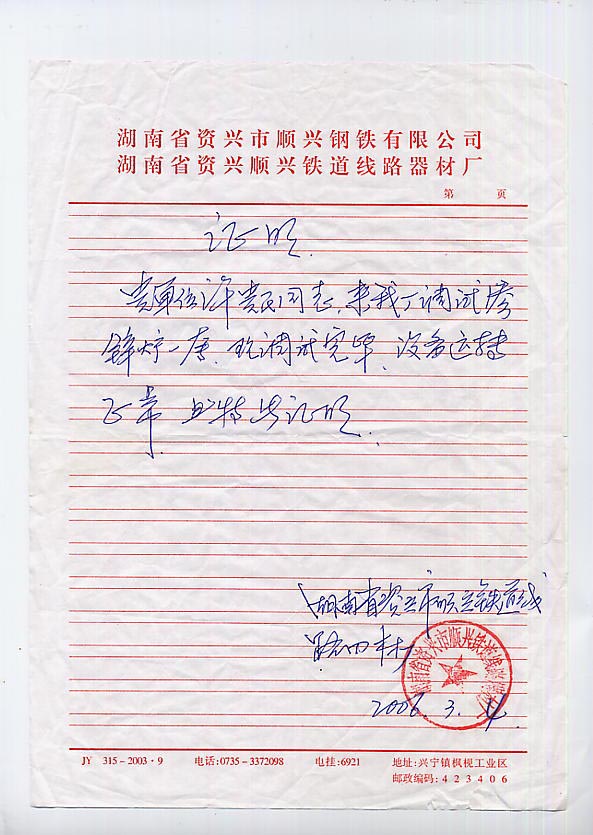 湖南省资兴市顺兴钢铁有限公司
湖南省资兴顺兴铁道线路器材厂
第 页
证明
贵单位许贵民同志,来我厂调试渗
锌炉一台,现调试完毕,设备运转
正常 特此证明.
湖南省资兴市顺兴铁道线
路四材厂
湖南省资兴市顺兴铁道线路器材厂
2006.3.4.
JY 315-2003·9 电话:0735-3372098 电挂:6921 地址:兴宁镇枫枧工业区
邮政编码:423406